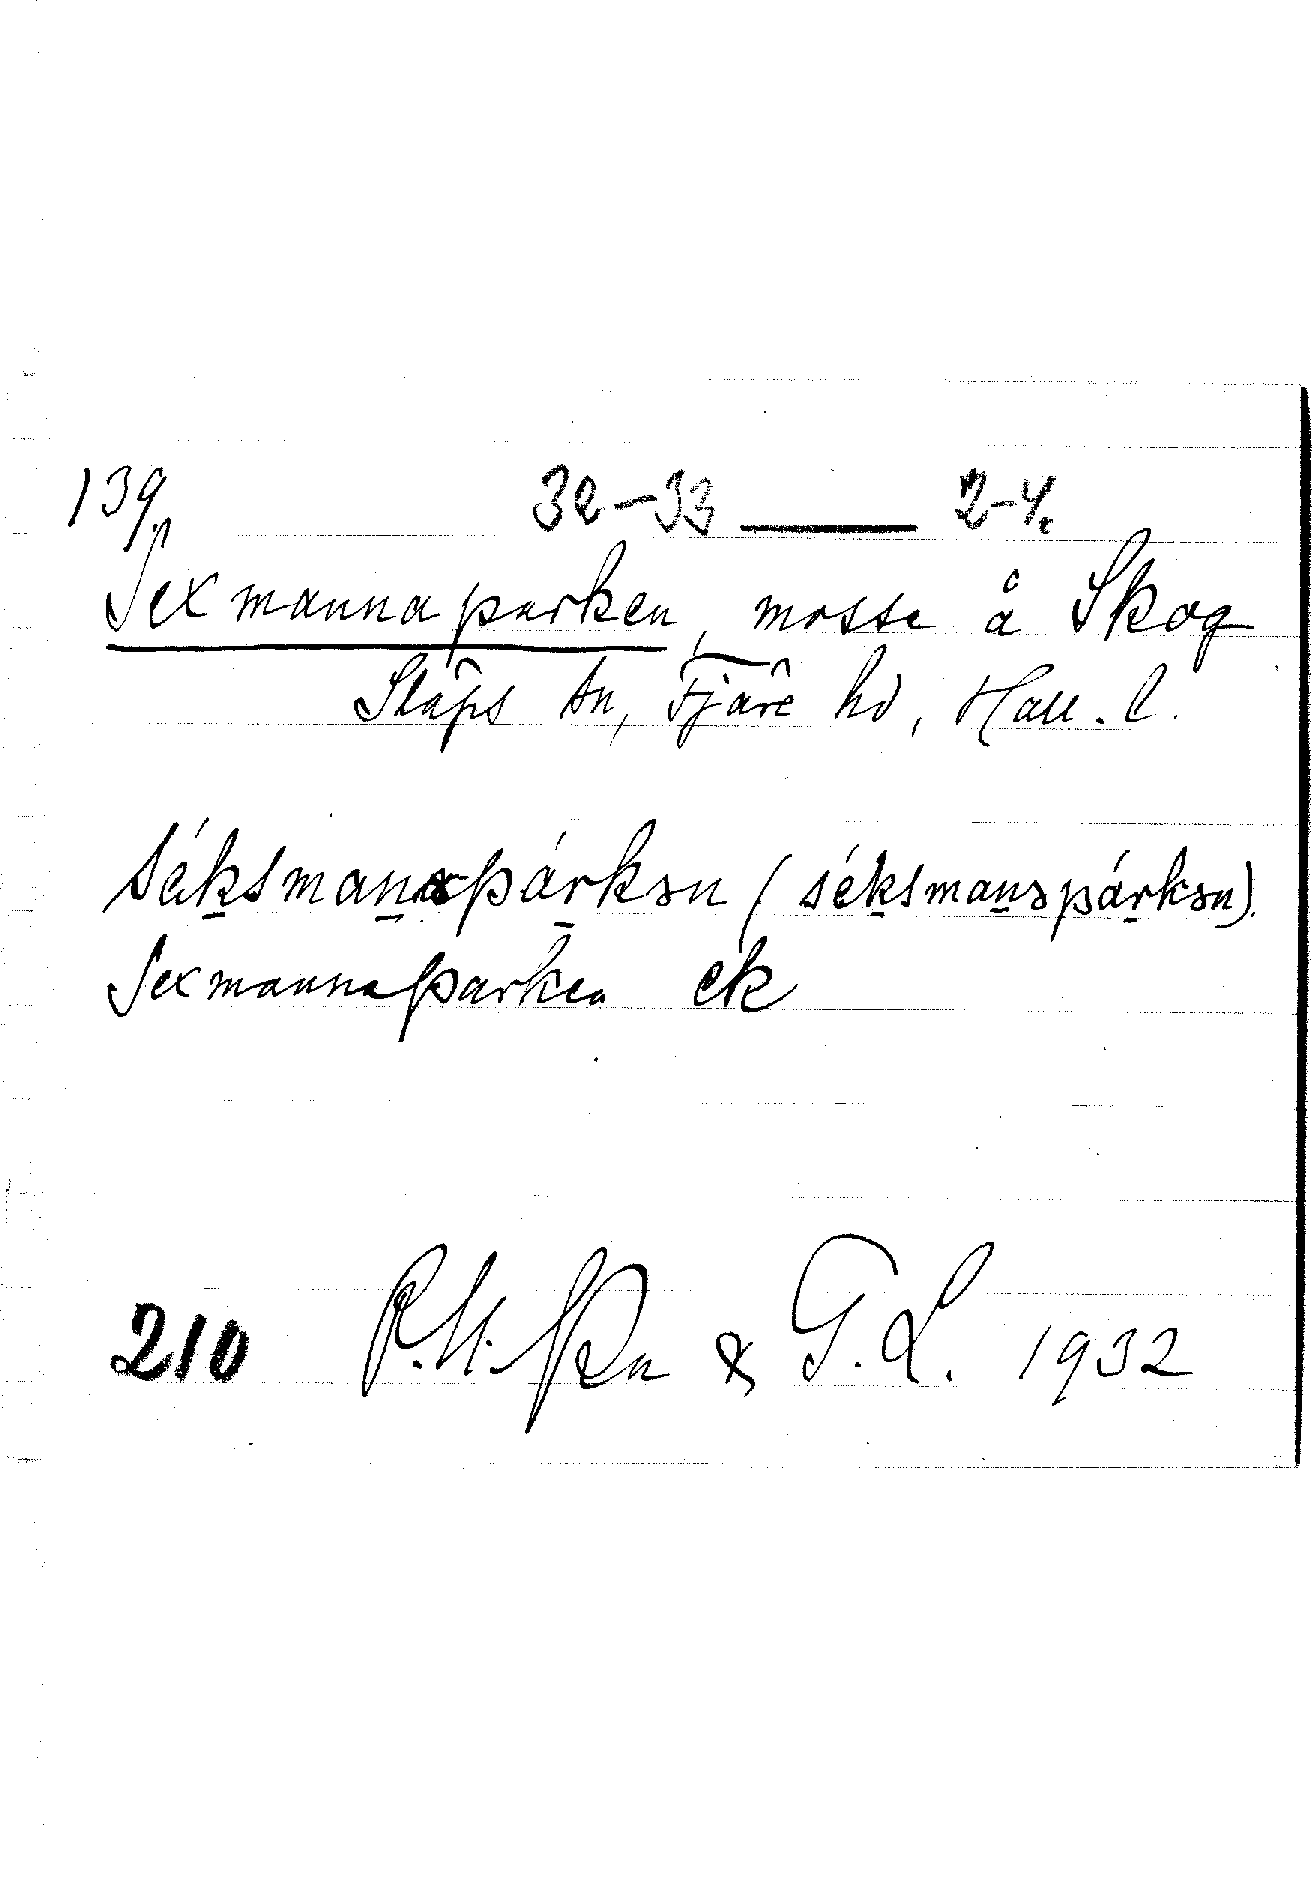 139. 32-33 — 2-4.
Sexmannaparken, mosse å Skog
Släps sn, Fjäre hd, Hall. l.
séksmanapárkən (séksmanəpárkən).
Sexmannaparken ek
210 & G. L. 1932